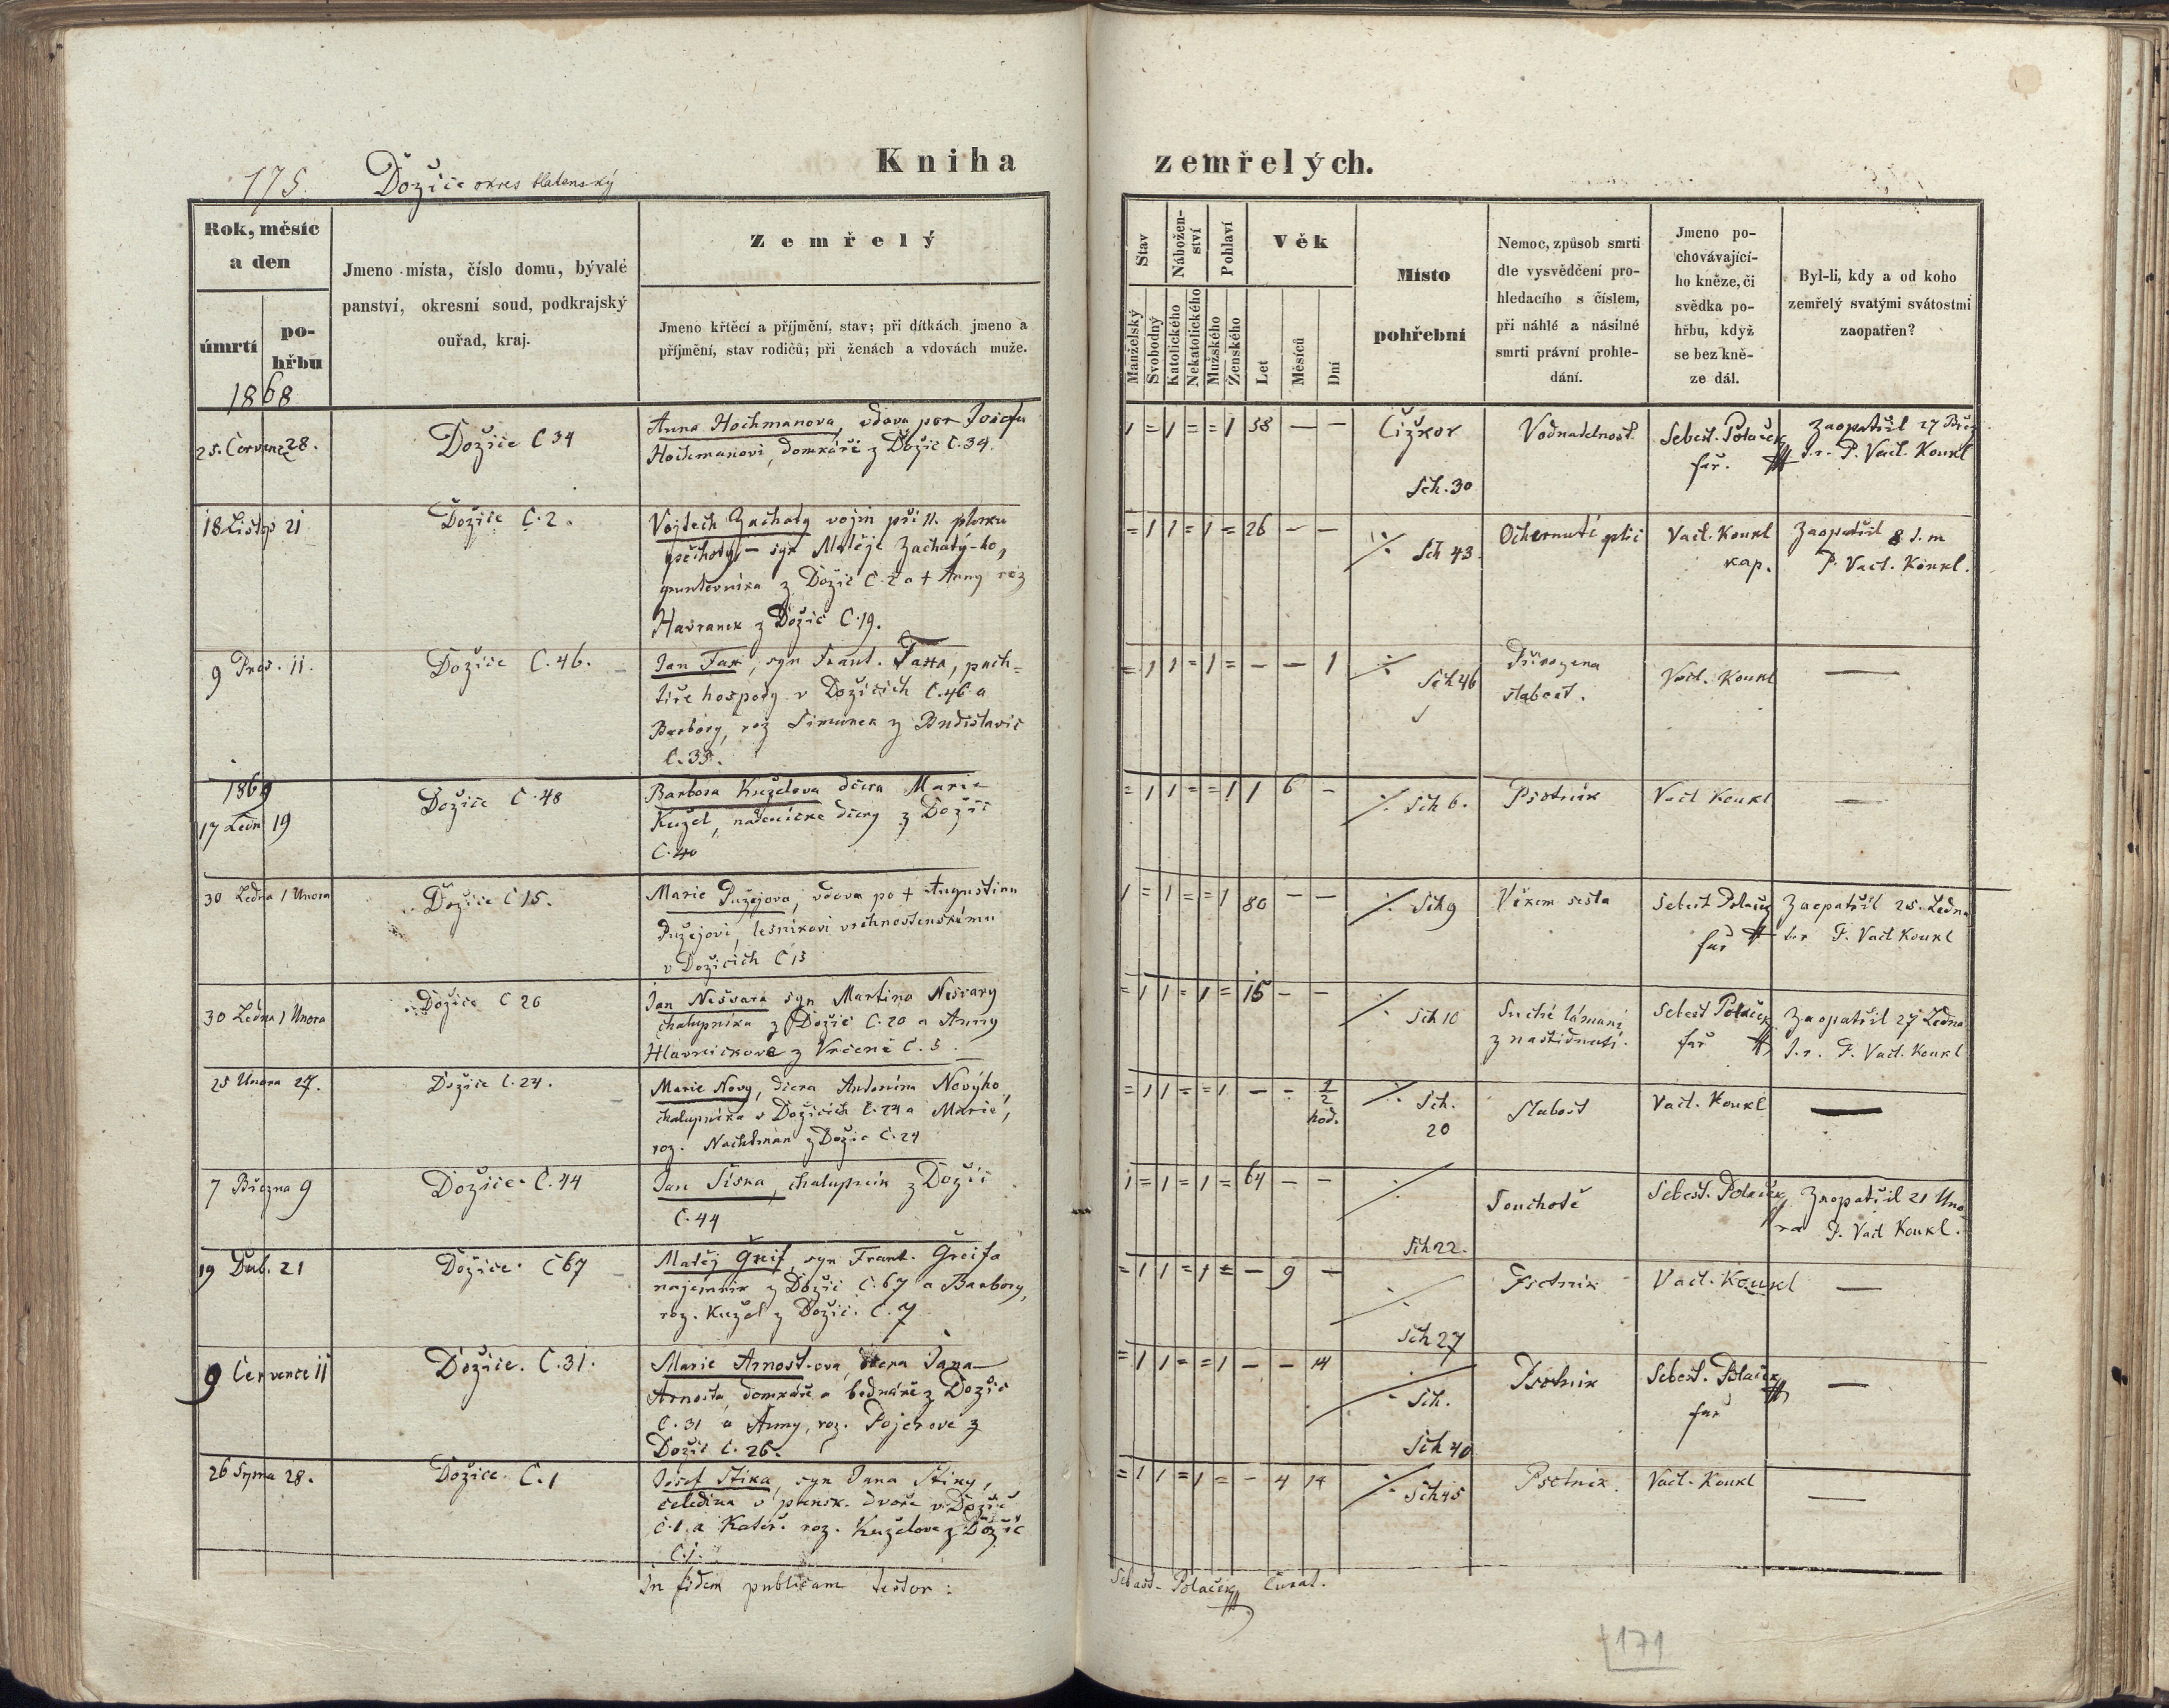 Kniha
zemřelých.
175.
Dožice okres blatenský
Rok, měsíc
a den
úmrtí
po-
hřbu
1868
Jmeno místa, číslo domu, bývalé
panství, okresní soud, podkrajský
ouřad, kraj.
Zemřelý
Jmeno křtěcí a příjmění, stav; při dítkách jmeno a
příjmění, stav rodičů; při ženách a vdovách muže.
Stav
Manželský
Svobodný
Nábožen-
ství
Katolického
Nekatolického
Pohlaví
Mužského
Ženského
Věk
Let
Měsíců
Dní
Místo
pohřební
Nemoc, způsob smrti
dle vysvědčení pro-
hledacího s číslem,
při náhlé a násilné
smrti právní prohle-
dání.
Jmeno po-
chovávající-
ho kněze, či
svědka po-
hřbu, když
se bez kně-
ze dál.
Byl-li, kdy a od koho
zemřelý svatými svátostmi
zaopatřen?
25. Července 28.
Dožice C 34
Anna Hochmanova, vdova po Josefu
Hochmanovi, domkáři z Dožic C. 34.
1 = 1 = = 1 58 — —
Čižkov
Sch. 30
Vodnatelnost
Sebest. Polaček
far.
Zaopatřil 27
P. Vacl. Konkl
18 Listop 21
Dožice C. 2.
Vojtech Zachaty vojín při 11. pluku
pěchoty — syn Matěje Zachatý-ho,
gruntovníka z Dožic C. 2 a + Anny roz
Havranek z Dožic C. 19.
= 1 1 = 1 = 26 — —
Sch 43.
Ochrnutí plic
Vacl. Konkl
kap.
Zaopatřil 8 t. m
P. Vacl. Konkl.
9 Pros. 11.
Dožice C. 46.
Jan Fax, syn Frant. Faxa, pach-
týře hospody v Dožicích C. 46 a
Barbory, roz Simunek z Budislavic
C. 35.
= 1 1 = 1 = — — 1
Sch 46
Přirozena
slabost.
Vacl. Konkl
—
1869
17 Ledn 19
Dožice C. 48
Barbora Kuželova dcera Marie
Kužel, nadenické dcery z Dožic
C. 40
= 1 1 = = 1 1 6 —
Sch 6.
Psotník
Vacl Konkl
—
30 Ledna 1 Unora
Dožice C 15.
Marie Pužejova, vdova po + Augustinu
Pužejovi, lesníkovi vrchnostenskému
v Dožicích C 15
1 = 1 = = 1 80 — —
Sch 9
Věkem sešla
Sebest Polaček
far
Zaopatřil 25. Ledna
P. Vacl Konkl
30 Ledna 1 Unora
Dožice C 20
Jan Nesvara syn Martina Nesvary
chalupníka z Dožic C. 20 a Anny
Hlavničkove z Vrčeně C. 5.
= 1 1 = 1 = 15 — —
Sch 10
Suché lámaní
z nastidnutí.
Sebest Polaček
far
Zaopatřil 27 Ledna
P. Vacl. Konkl
25 Unora 27.
Dožice C. 24.
Marie Novy, dcera Antonína Novýho,
chalupníka v Dožicích C. 24 a Marie,
roz. Nachtman z Dožic C. 24
= 1 1 = = 1 — — 1/2
hod.
Sch.
20
Slabost
Vacl. Konkl
—
7 Března 9
Dožice. C. 44
Jan Siska, chalupník z Dožic
C. 44
1 = 1 = 1 = 64 — —
Sch 22.
Souchotě
Sebest. Polaček
Zaopatřil 21 Uno
ra P. Vacl Konkl.
19 Dub. 21
Dožice. C 67
Matěj Greif, syn Frant. Greifa
najemník z Dožic C. 67 a Barbory,
roz. Kužel z Dožic. C. 7
= 1 1 = 1 = — 9 —
Sch 27
Psotnik
Vacl. Konkl
—
9 Července 11
Dožice. C. 31.
Marie Arnost-ova, dcera Jana
Arnosta, domkáře a bednáře z Dožic
C. 31 a Anny, roz. Pojerové z
Dožic C. 26.
= 1 1 = = 1 — — 14
Sch.
Sch 40
Psotnik
Sebest. Polaček
far
—
26 Srpna 28.
Dožice. C. 1
Josef Stika, syn Jana Stiky,
čeledína v pansk. dvoře v Dožic
C. 1. a Kateř. roz. Kuželove z Dožic
C. 1.
= 1 1 = 1 = — 4 14
Sch 45
Psotnik.
Vacl. Konkl
—
In fidem publicam testor:
Sebast. Polaček Curat.
171